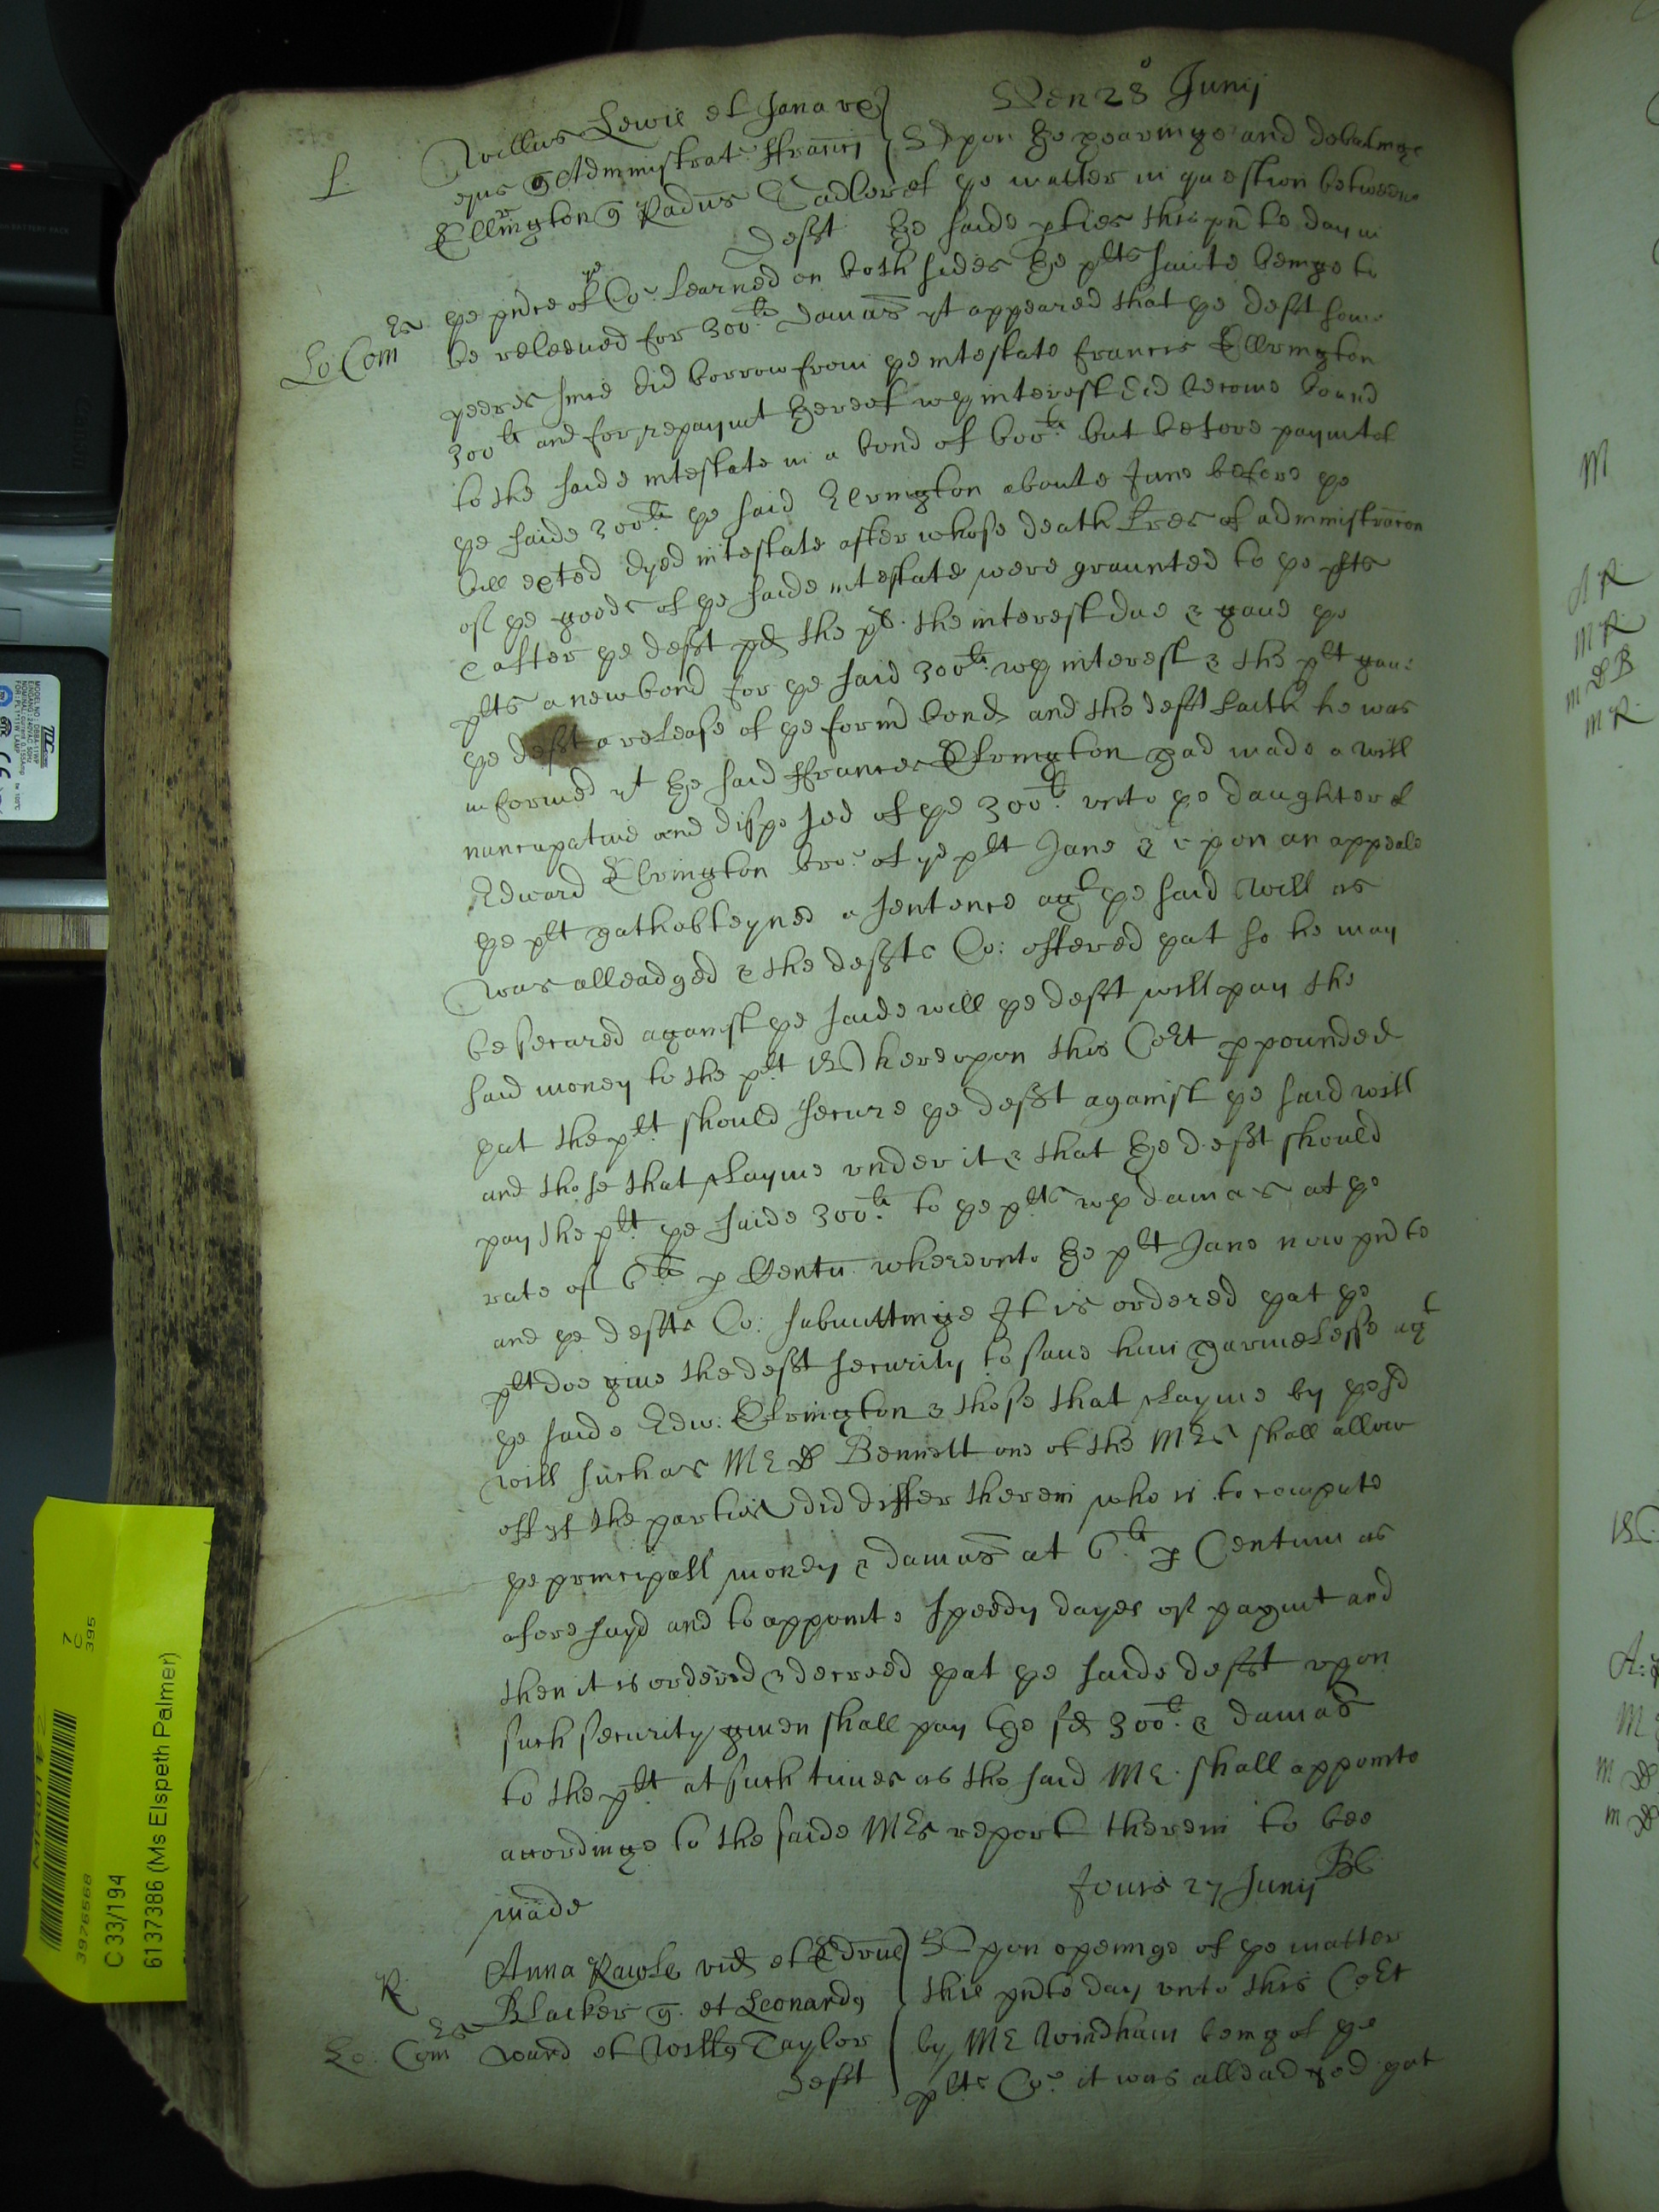 Ven 28° Junij
L
Willus Lewis et Jana ux
eius q Administrat ffrancj
Ellrington q Radus Sadler
Defft
Upon the hearinge and debateinge
of ye matter in question betweene
the saide pties this pnte day in
Lo: Comrs
ye pnce of ye Co: learned on both sides the plts suite beinge to
be releeued for 300li damas yt appeared that ye defft some
yeeres since did borrow from ye intestate francis Ellrington
300li and for repaymt thereof wth interest did become bound
to the saide intestate in a bond of 600li but before paymt of
ye saide 300li ye said Elrington aboute June before ye
bill exted dyed intestate after whose death lres of administracon
of ye goods of ye saide intestate were graunted to ye plts
& after ye defft pd the plt. the interest due & gaue ye
plts a new bond for ye said 300li wth interest & the plt gaue
ye defft a release of ye formd bond and the defft saith he was
informed yt the said ffrances Elrington had made a will
nuncupatiue and disposed of ye 300li unto ye daughter of
Edward Elrington bro: of ye plt Jane & upon an appeale
ye plt hath obteyned a sentence agt ye said Will as
was alleadged & the deffts Co: offered yat so he may
be secured against ye saide will ye defft will pay the
said money to the plt Whereupon this Cort ppounded
yat the plt should secure ye defft against ye said will
and those that clayme under it & that the defft should
pay the plt ye saide 300li to ye plts wth damas at ye
rate of 6li p Centu whereunto the plt Jane now pnte
and ye deffts Co: submittinge It is ordered yat ye
plt doe giue the defft security to saue him harmelesse agt
ye saide Edw: Elrington & those that clayme by ye sd
will such as Mr Dr Bennett one of the Mrs shall allow
off yf the parties did differ therein who is to compute
ye principall money & damas at 6li p Centum as
aforesayd and to appointe speedy dayes of paymt and
then it is ordered & decreed yat ye saide defft upon
such security giuen shall pay the sd 300li & damas
to the plt at such times as the said Mr shall appointe
accordinge to the saide Mrs report therein to bee
made
Jouis 27 Junij
R
Anna Rawls vid et Edrus
Blacker q. et Leonardq
Lo: Comrs
Ward et Willq Taylor
defft
Upon openinge of ye matter
this pnte day unto this Cort
by Mr Windham being of ye
plts Co: it was alleadged yat
M
M R
M R
C 33/194
6137386 (Ms Elspeth Palmer)
3976568
7
C
395